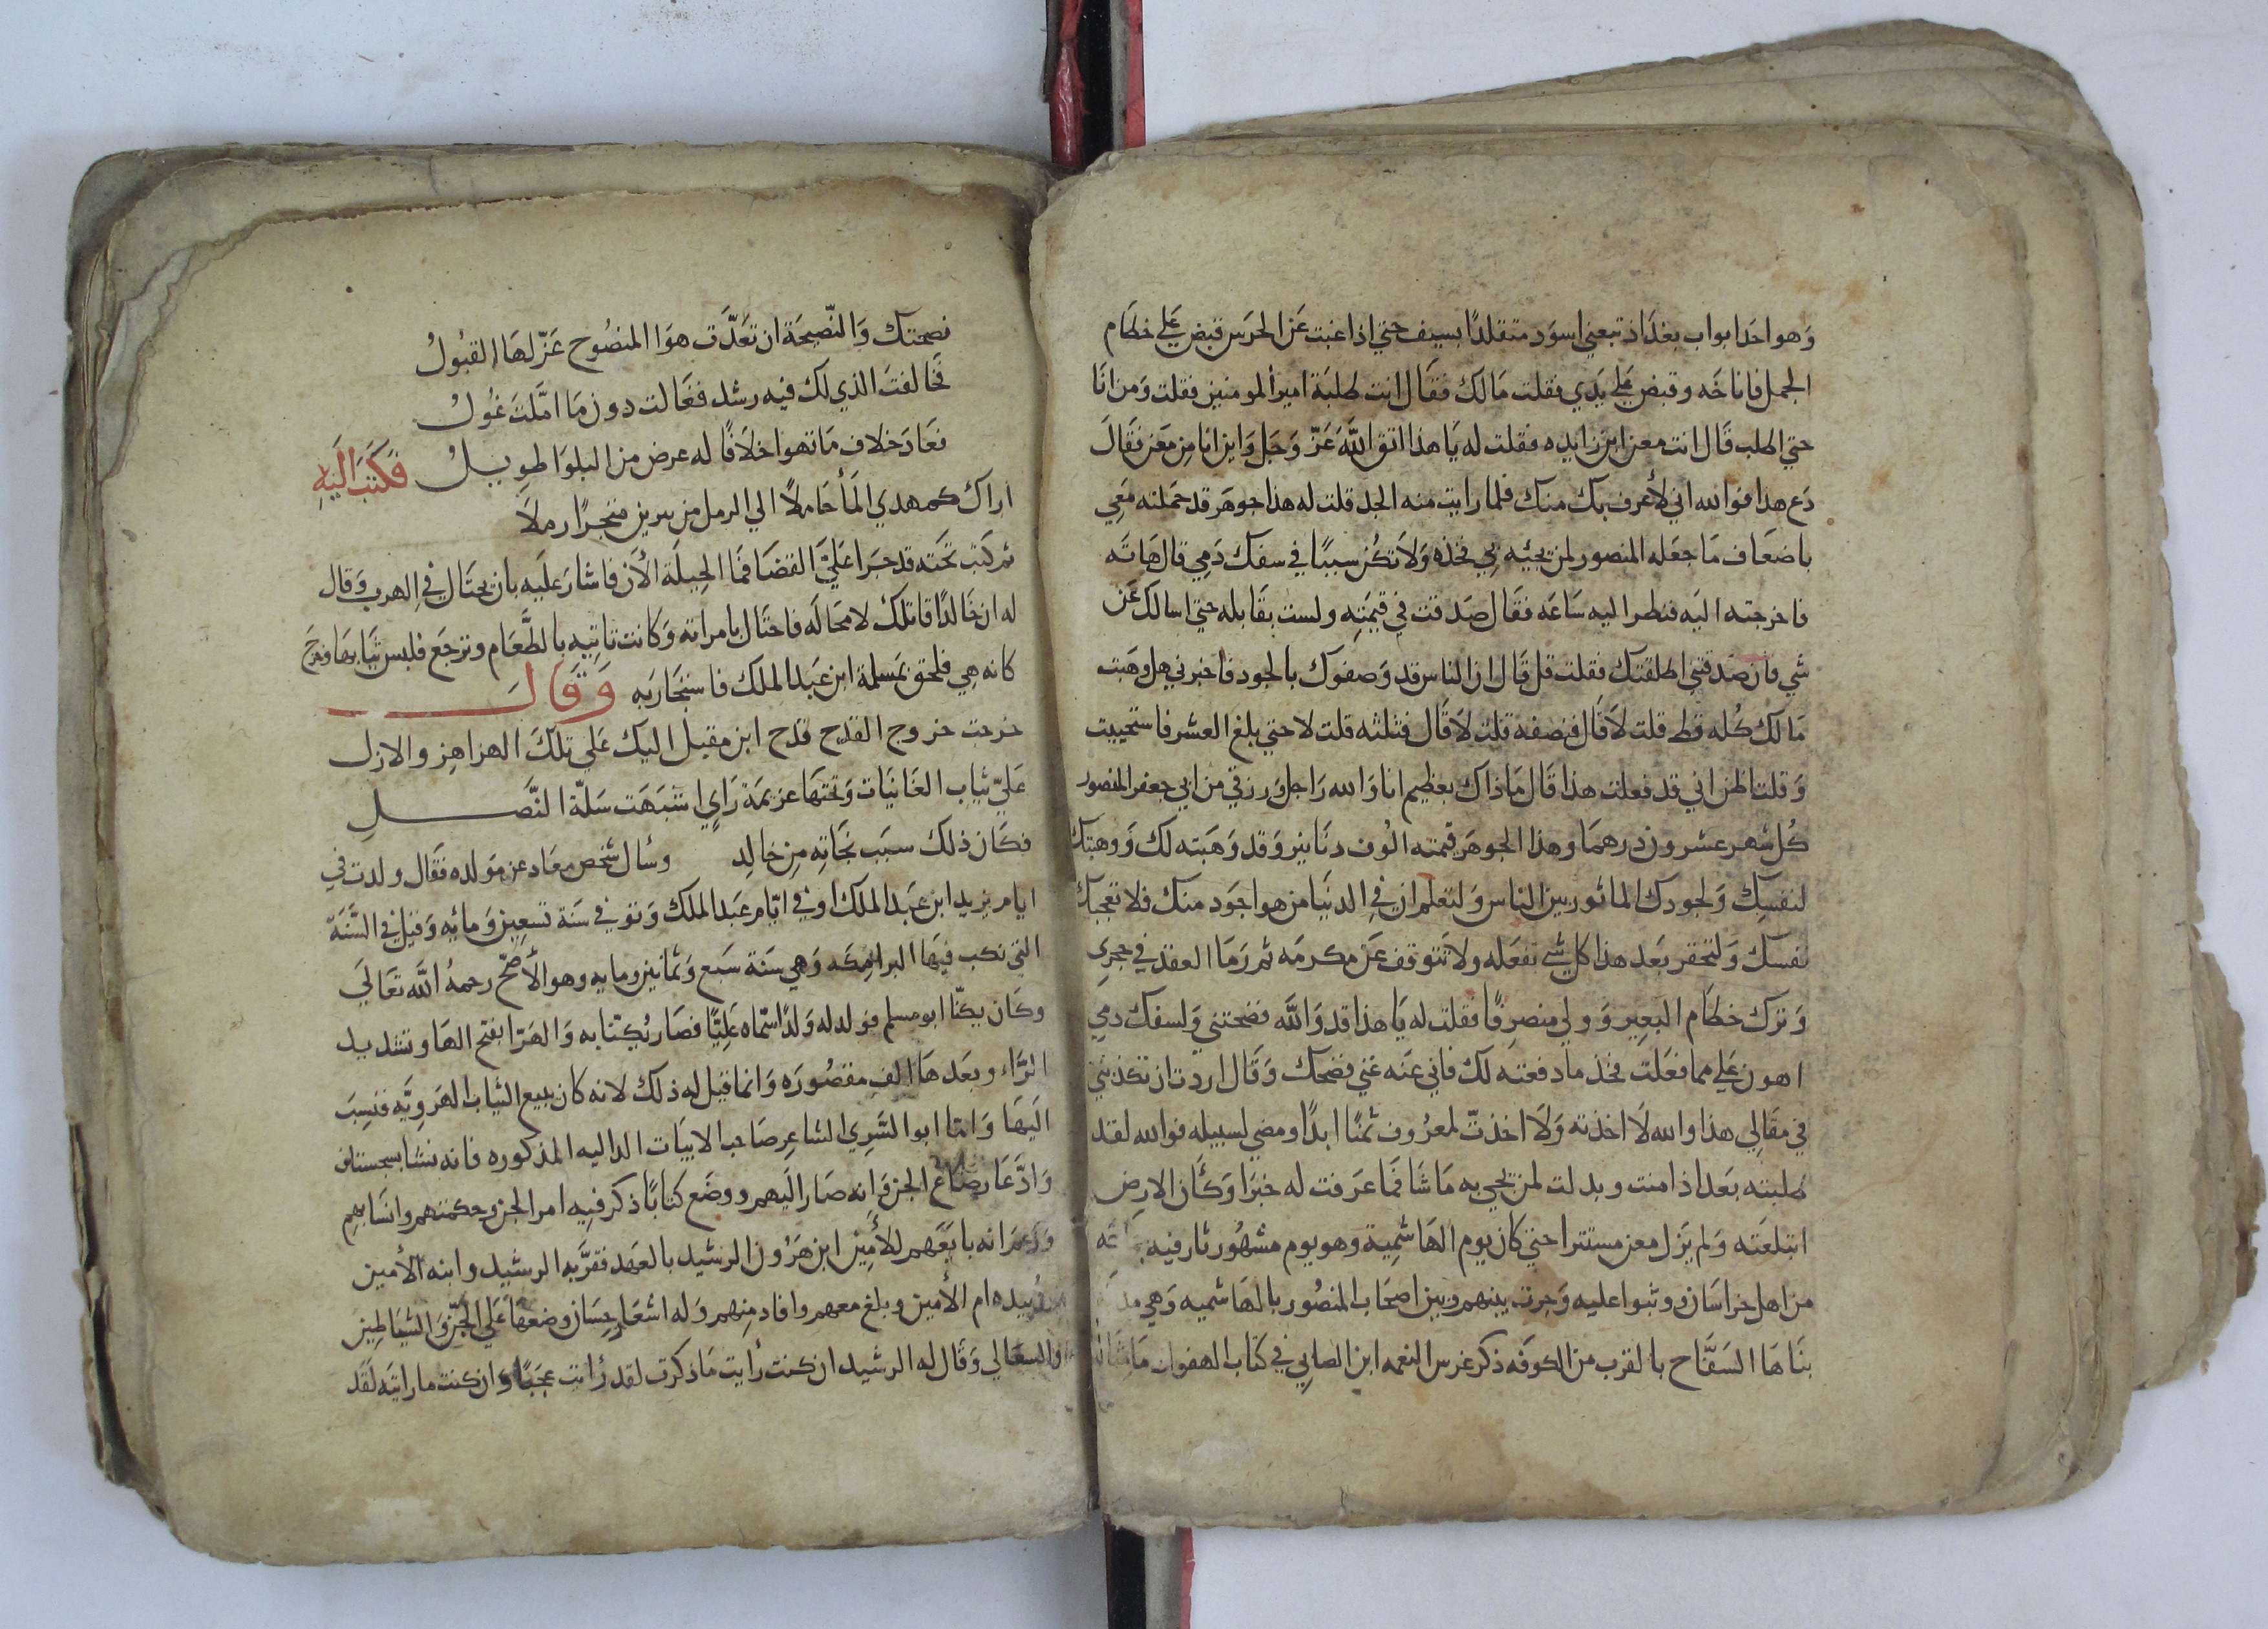 وَهو احَد ابواب بغدَاذ تبعني اسوَد متقلدًا بسيف حتي اذا غبت عَن الحرَس قبض عَلي خطَام
الجمل فاناخَه وقبض عَلي يَدي فقلت مَا لك فقَال انت طلبَة امير المومنين فقلت وَمن انَا
حتي اطلب قَال انت معن ابن زايده فقلت له يَا هذا اتق اللَّه عَزّ وَجَل وَاين انا مِن مَعن فقَالَ
دَع هذا فوالله اني لأعرف بك منك فلما رايت منه الجد قلت له هذا جوهَر قد حمَلته مَعِي
باضعَاف مَا جعَله المنصور لمن يجيئه بي فخذه وَلاَ تكُن سببًا في سفك دَمِي قال هَاته
فاخرجته اليَه فنظر اليه سَاعَه فقَال صَدقت في قيمَتِه ولست بقَابله حتي اسالك عَن
شي فان صَدقتني اطلقتك فقلت قل قَال ان الناس قد وَصفوك بالجود فاخبرني هل وهَبت
مَالك كُله قط قلت لاَ قَال فنصفه قلت لاَ قَال فثلثه قلت لا حتي بلغ العشر فاستحييت
وَقلت اظن اني قد فعلت هذا قَال مَا ذاك بعظيم انا وَالله رَاجل وَرزقي من ابي جعفر المنصور
كُل شهر عشرون درهمَا وهذا الجوهَر قيمته الُوف دنَانير وَقد وَهَبته لك وَوهبتك
لنفسِك وَلجودك الماثور بين الناس وَلتعلم ان في الدنيَا من هو اجوَد منك فلا تعجبك
نفسك وَلتحقر بَعد هذا كل شي تفعَله ولا تَتوقف عَن مكرمَه ثم رَمَا العقد في حجري
وَترك خطَام البعِير وَولي منصرِفًا فقلت له يَا هذا قد وَاللَّه فضحتني وَلسفك دمي
اهون عَلي مما فعَلت فخذ ما دفعته لك فاني عَنه غني فضحك وَقَال اردت ان تكذبني
في مقَالِي هذا والله لاَ اخذته وَلاَ اخذتّ لمعرُوف ثمنًا ابدًا ومضي لسبيله فوالله لقد
طلبته بَعد اذ امنت وبدلت لمن يجي به مَا شَا فمَا عَرفت له خبرَا وَكَأن الارض
ابتلعَته وَلم يَزل معن مستترا حتي كان يوم الهَاشمِية وهو يوم مشهُور ثار فيه
من اهل خراسَان ووثبوا عليه وَجرت بينهم وبين اصحَاب المنصُور بالهَاشميه وَهي
بنَاهَا السَفَّاح بالقرب من الكوفَه ذكر غرس النعمه ابن الصابي في كتَاب الهفوات مَا مثَاله
نصحتك وَالنّصِيحَة ان تعَدَّت هوَا المنصُوح عَزّ لهَا القبُولُ
فخَالفتَ الذي لك فيه رشد فغَالت دون مَا امَّلتَ غُولُ
فعَادَ خلاف مَا تهوا خلاَفًا له عرض من البلوَا طوِيلُ فكتبَ اليَهِ
اراك كمهدي المأ حَاملاً الي الرمل من يبرين متجرًا رملاَ
ثم كتبَ تحَته قد جرَا عَليَّ القضَا فمَا الحِيلَة الأن فاشَارَ علَيه بان يحتَال في الهرب وَقال
له ان خَالدًا قاتلك لا محَالَه فاحتَال بامراته وَكَانت تاتيه بالطعَام وترجَع فلبس ثيَابهَا وخرج
كانه هِي فلحق بمَسلمة ابن عَبد الملك فاستجَار به وَقَالَ
خرجت خروج القدح قدح ابن مقبل اليك عَلي تلكَ الهزاهِز والازل
عَليَّ ثيَاب الغَانيَات وَتحتهَا عزيمَة رَايٍ اشبَهَت سَلّة النَّصلِ
فكَان ذلك سبَب نجَاتِه مِن خالِد وسُال شخص معَاد عن مَولده فقَال ولدت في
ايام يزيد ابن عَبد الملك او في ايّام عَبد الملك وَتوفي سَنة تسعِين وَمائيه وَقيل في السَّنَة
التي نكب فيهَا البرامِكَه وَهي سَنَة سَبع وَثمانين ومايه وهو الأصَحّ رحمهُ اللَّه تعَالَي
وكَان يكنّا ابو مسلم فولد له وَلدًا سمّاه عَلِيّا فصَار يُكنّا به وَالهَرّا بفتح الهَا وتشديد
الرَّاء وبعَدهَا الف مقصُورَه وَانما قيل له ذلك لانه كان يبيع الثيَاب الهَروِيَّه فنسِبَ
اليَهَا وَامّا ابو السَّرِي الشاعِر صَاحب الابيَات الداليه المذكوره فانه نشا بسجستان
وَادَّعَا رضَاعَ الجن وَانه صَار اليَهم ووضَع كتابًا ذكر فيه امر الجن وحكمتهم وانسَابهم
وَزعَم انه بايَعَهم للأمِين ابن هَرُون الرشيد بالعَهد فقرَّبه الرشيد وابنه الأمين
وزبيده ام الأمين وبلغ معهم وافاد منهم وَله اشعَار حِسَان وضعهَا عَلي الجنّ وَالشيَاطِين
والسعَالي وَقَال له الرشيد ان كنت رأيت مَا ذكرت لقد رأيت عجَبًا وَان كنت ما رايته لَقَد